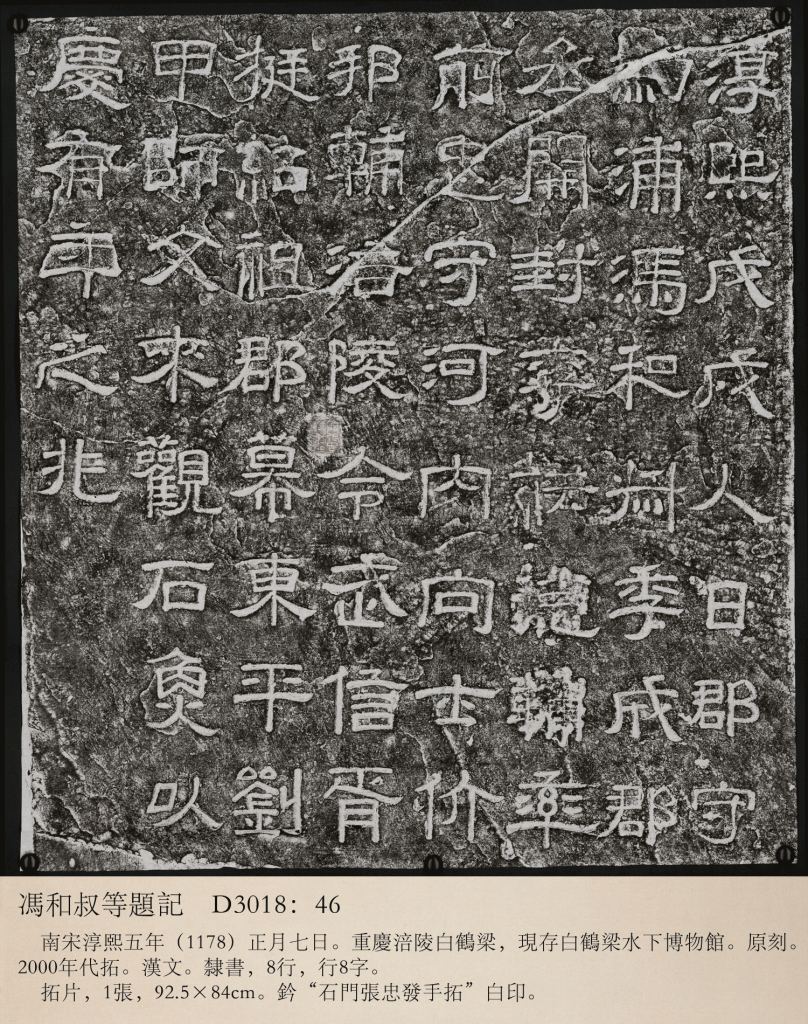 淳熙戊戌人日郡守
浦馮和叔季成郡
丞開封德輔率
前忠守河內向士价
邦輔涪陵令武信胥
挺紹祖郡幕東平劉
甲師文來觀石魚以
慶有年之兆
馮和叔等題記 D3018：46
南宋淳熙五年（1178）正月七日。重慶涪陵白鶴梁，現存白鶴梁水下博物館。原刻。
2000年代拓。漢文。隸書，8行，行8字。
拓片，1張，92.5×84cm。鈐“石門張忠發手拓”白印。